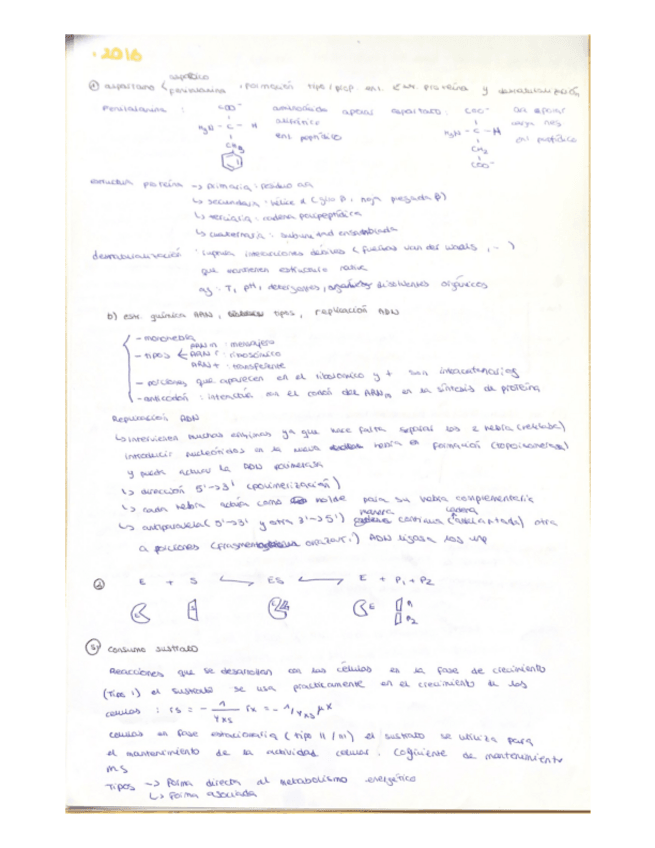 · 2016
① aspartamo < aspártico
fenilalanina , formación tipo / prop. enl. Est. proteína y desnaturalización
Fenilalanina : COO⁻ aminoácido apolar aspartato: COO⁻ aa
H₃N - C - H enl. peptídico H₃N - C - H carga neg
CH₂ CH₂ enl peptídico
COO⁻
estructura proteína -> primaria : residuo aa
↳ secundaria : hélice α ( β, hoja plegada β)
↳ terciaria : cadena polipeptídica
↳ cuaternaria : subunidad ensamblada
desnaturalización : interacciones débiles ( fuerzas van der Waals , - )
que mantienen estructura nativa
ag : T, pH, detergentes, disolventes orgánicos
b) estr. química ARN, tipos, replicación ADN
- monohebra
- tipos < ARN m : mensajero
ARN r : ribosómico
ARN t : transferente
- porciones que aparecen en el ribosómico y t son intracatenarias
- anticodón : interactúa con el codón del ARNm en la síntesis de proteína
Replicación ADN
↳ intervienen muchas enzimas ya que hace falta separar las 2 hebras (helicasa)
introducir nucleótidos en la nueva hebra en formación (topoisomerasa)
y pueda actuar la ADN polimerasa
↳ dirección 5'->3' (polimerización)
↳ cada hebra actúa como molde para su hebra complementaria
↳ antiparalela ( 5'->3' y otra 3'->5') manera continua (adelantada) otra
a porciones (fragmentos okazaki) ADN ligasa las une
② E + S ⟷ ES ⟷ E + P₁ + P₂
E S E P₁
P₂
③ Consumo sustrato
Reacciones que se desarrollan con las células en la fase de crecimiento
(Tipo I) el sustrato se usa prácticamente en el crecimiento de las
células : rs = - 1/Yxs rx = - 1/Yxs μX
Células en fase estacionaria (tipo II / III) el sustrato se utiliza para
el mantenimiento de la actividad celular. Coeficiente de mantenimiento
ms
Tipos -> Forma directa al metabolismo energético
↳ Forma asociada